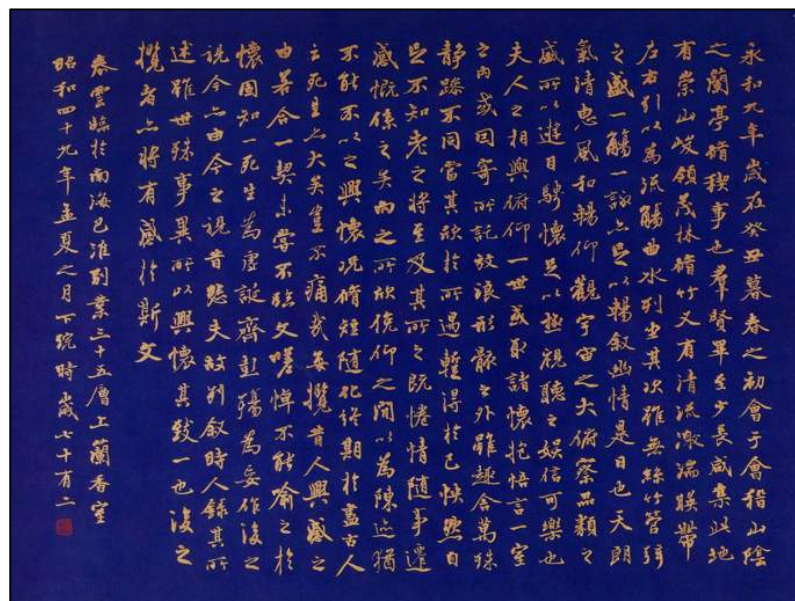 永和九年歲在癸丑暮春之初會于會稽山陰
之蘭亭脩稧事也羣賢畢至少長咸集此地
有崇山峻領茂林脩竹又有清流激湍暎帶
左右引以為流觴曲水列坐其次雖無絲竹管弦
之盛一觴一詠亦足以暢敘幽情是日也天朗
氣清惠風和暢仰觀宇宙之大俯察品類之
盛所以遊目騁懷足以極視聽之娛信可樂也
夫人之相與俯仰一世或取諸懷抱悟言一室
之內或因寄所託放浪形骸之外雖趣舍萬殊
靜躁不同當其欣於所遇蹔得於己怏然自
足不知老之將至及其所之既惓情隨事遷
感慨係之矣向之所欣俛仰之閒以為陳迹猶
不能不以之興懷況脩短隨化終期於盡古人
云死生亦大矣豈不痛哉每攬昔人興感之
由若合一契未嘗不臨文嗟悼不能喻之於
懷固知一死生為虛誕齊彭殤為妄作後之
視今亦由今之視昔悲夫故列敘時人錄其所
述雖世殊事異所以興懷其致一也後之
攬者亦將有感於斯文
春雲於南海別業三十五層上蘭香室
昭和四十九年孟夏之月下浣時歲七十有二